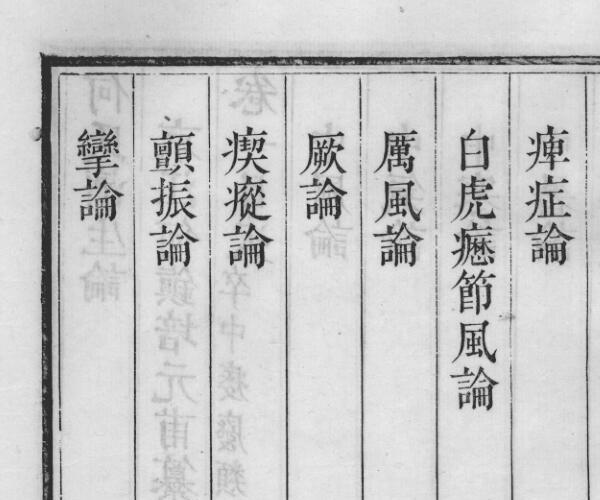 痺症論
白虎節風論
厲風論
厥論
瘈瘲論
顫振論
攣論